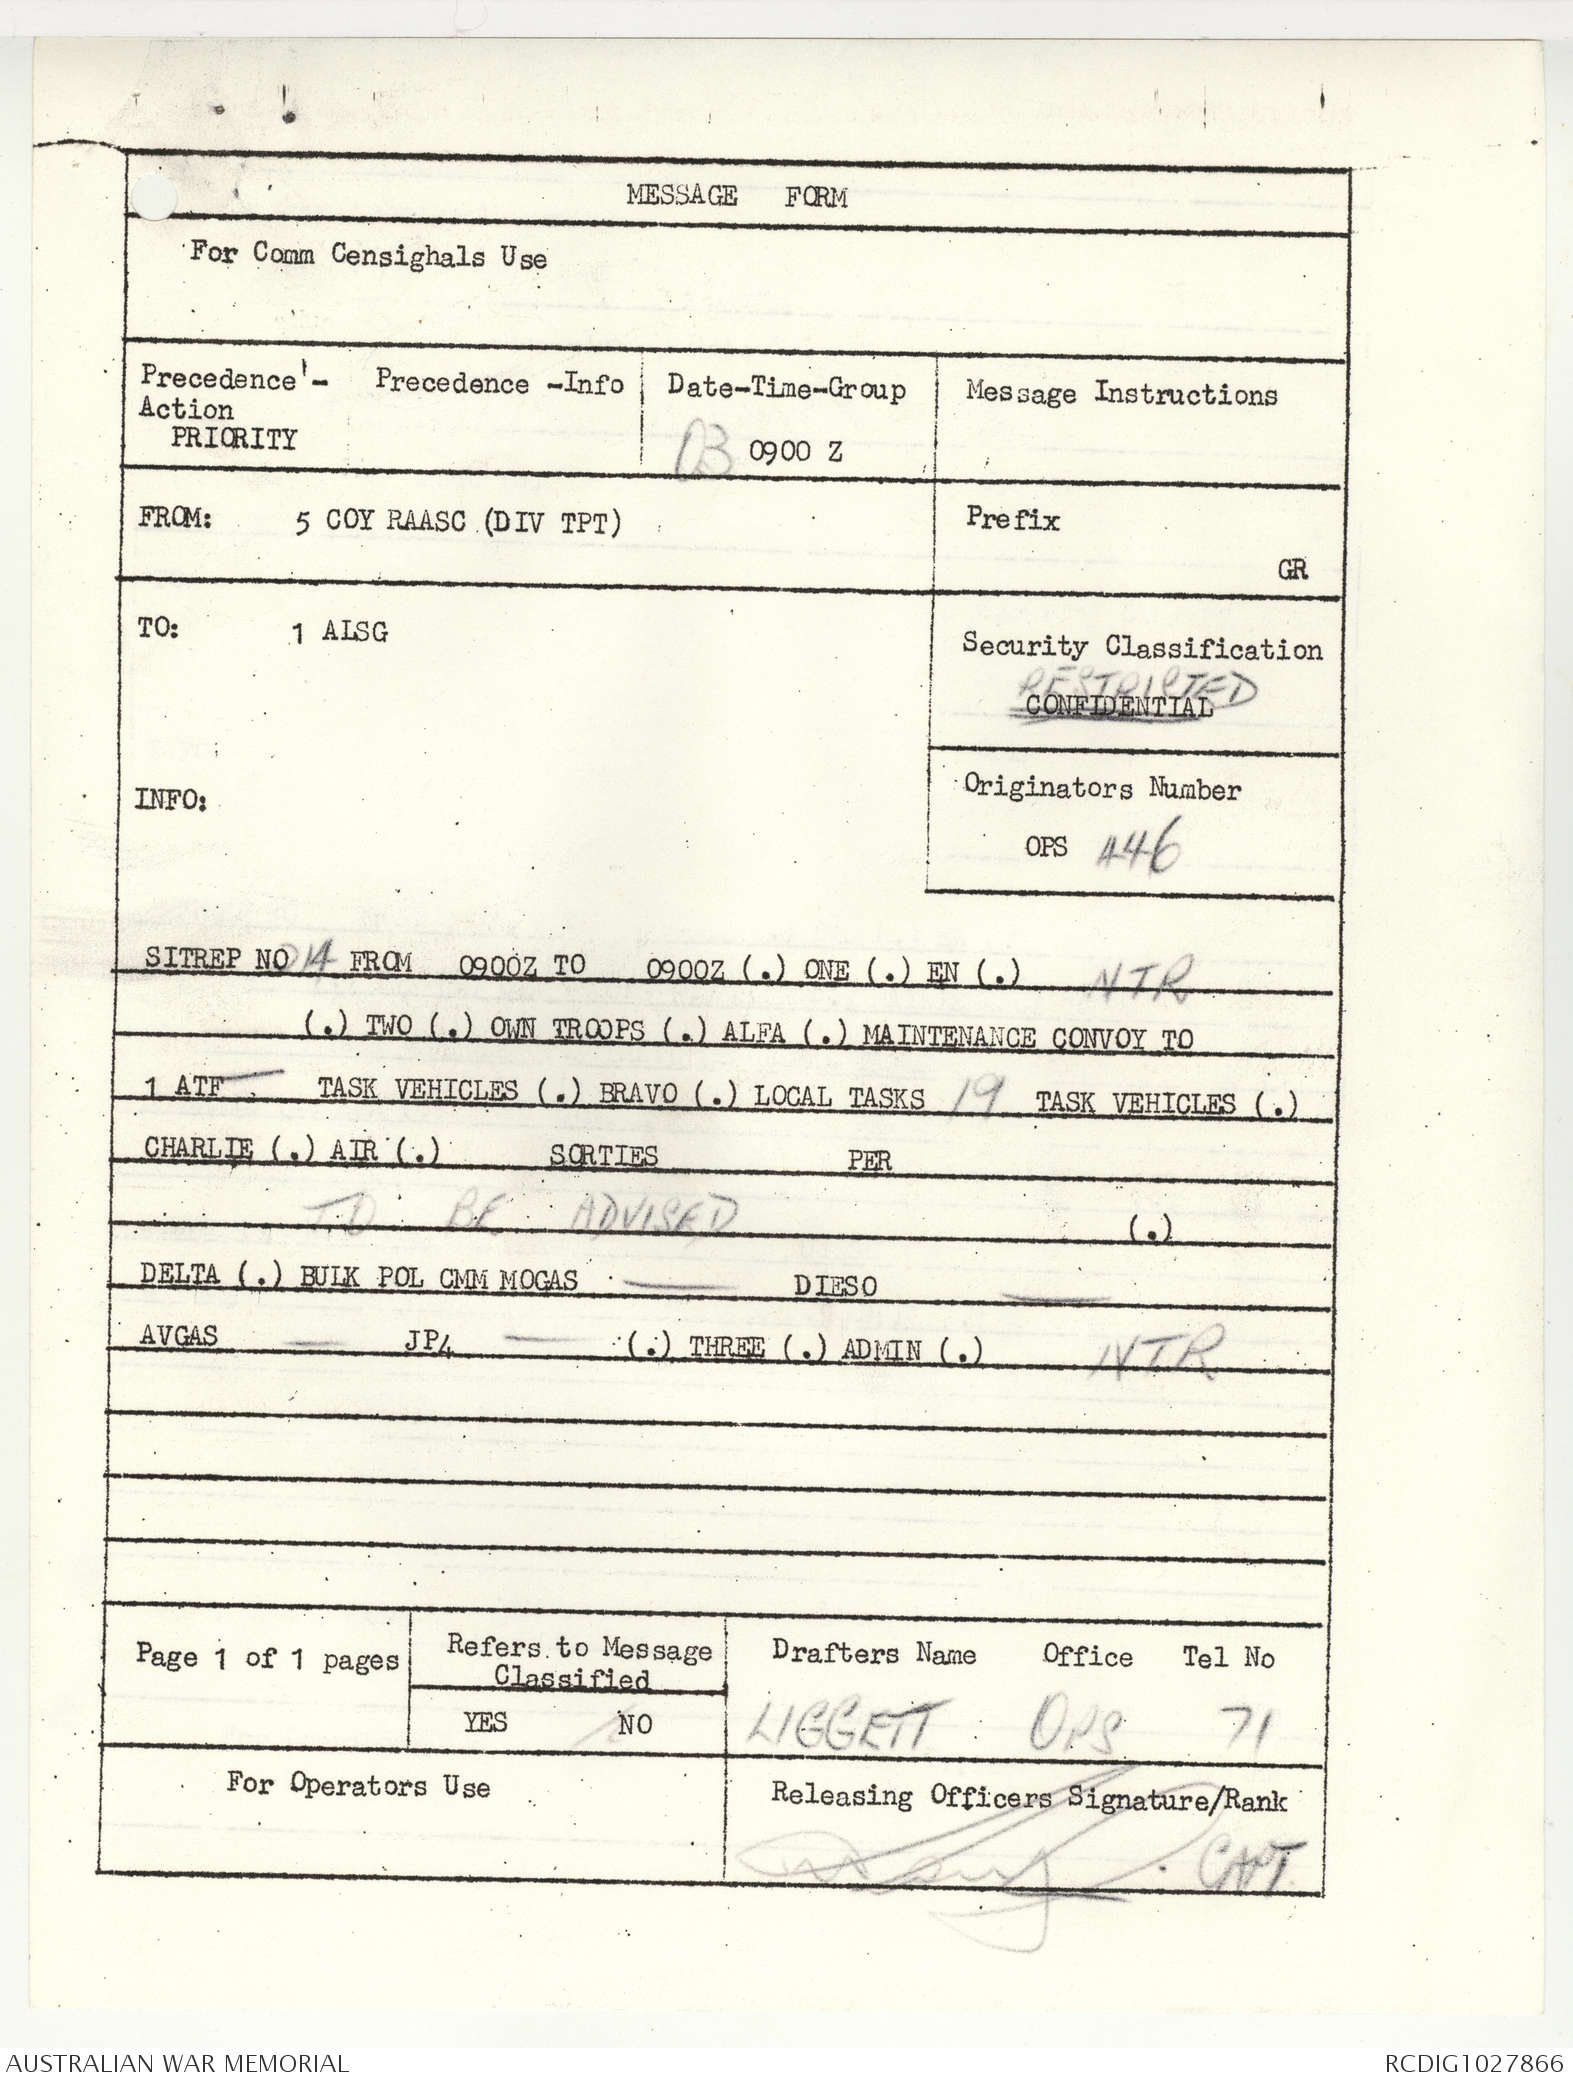 MESSAGE FORM
For Comm Censighals Use
Precedence - Precedence -Info Date-Time-Group Message Instructions
Action
PRIORITY 03 0900 Z
FROM: 5 COY RAASC (DIV TPT) Prefix
GR
TO: 1 ALSG Security Classification
RESTRICTED
CONFIDENTIAL
INFO: Originators Number
OPS 446
SITREP NO 014 FROM 0900Z TO 0900Z (.) ONE (.) EN (.) NTR
(.) TWO (.) OWN TROOPS (.) ALFA (.) MAINTENANCE CONVOY TO
1 ATF — TASK VEHICLES (.) BRAVO (.) LOCAL TASKS 19 TASK VEHICLES (.)
CHARLIE (.) AIR (.) SORTIES PER
TO BE ADVISED (.)
DELTA (.) BULK POL CMM MOGAS — DIESO —
AVGAS — JP4 — (.) THREE (.) ADMIN (.) NTR
Page 1 of 1 pages Refers to Message Drafters Name Office Tel No
Classified
YES NO LIGGETT OPS 71
For Operators Use Releasing Officers Signature/Rank
CAPT.
AUSTRALIAN WAR MEMORIAL RCDIG1027866